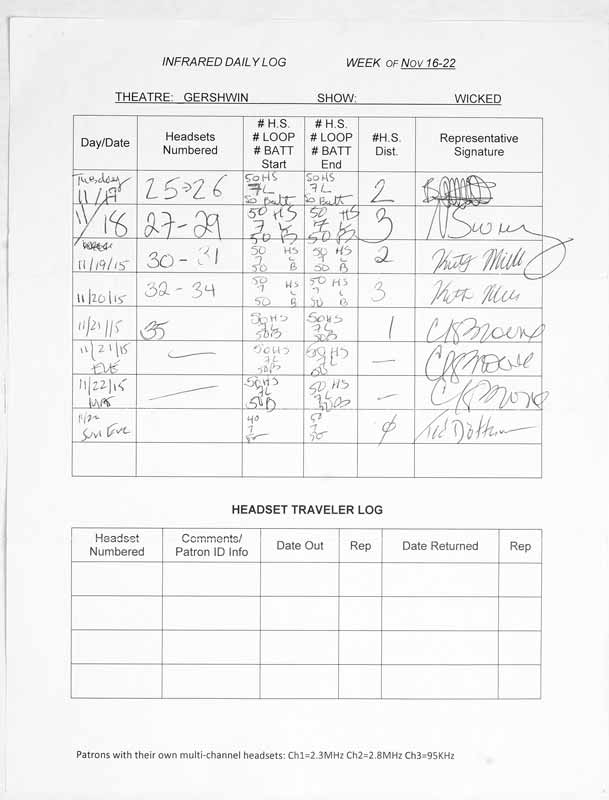 INFRARED DAILY LOG WEEK OF NOV 16-22
THEATRE: GERSHWIN SHOW: WICKED
Day/Date Headsets Numbered # H.S. # LOOP # BATT Start # H.S. # LOOP # BATT End #H.S. Dist. Representative Signature
Tuesday 11/17 25→26 50HS 7L 50 Batt 50HS 7L 50 Batt 2
11/18 27-29 50 HS 7 L 50 B 50 HS 7 L 50 B 3
11/19/15 30-31 50 HS 7 L 50 B 50 HS 7 L 50 B 2
11/20/15 32-34 50 HS 7 L 50 B 50 HS 7 L 50 B 3
11/21/15 35 50HS 7L 50B 50HS 7L 50B 1
11/21/15 EVE — 50HS 7L 50B 50HS 7L 50 —
11/22/15 MAT — 50HS 7L 50B 50 HS 7L 50B —
11/22 Sun Eve 40 7 50 50 7 50 ϕ Ted
HEADSET TRAVELER LOG
Headset Numbered Comments/ Patron ID Info Date Out Rep Date Returned Rep
Patrons with their own multi-channel headsets: Ch1=2.3MHz Ch2=2.8MHz Ch3=95KHz